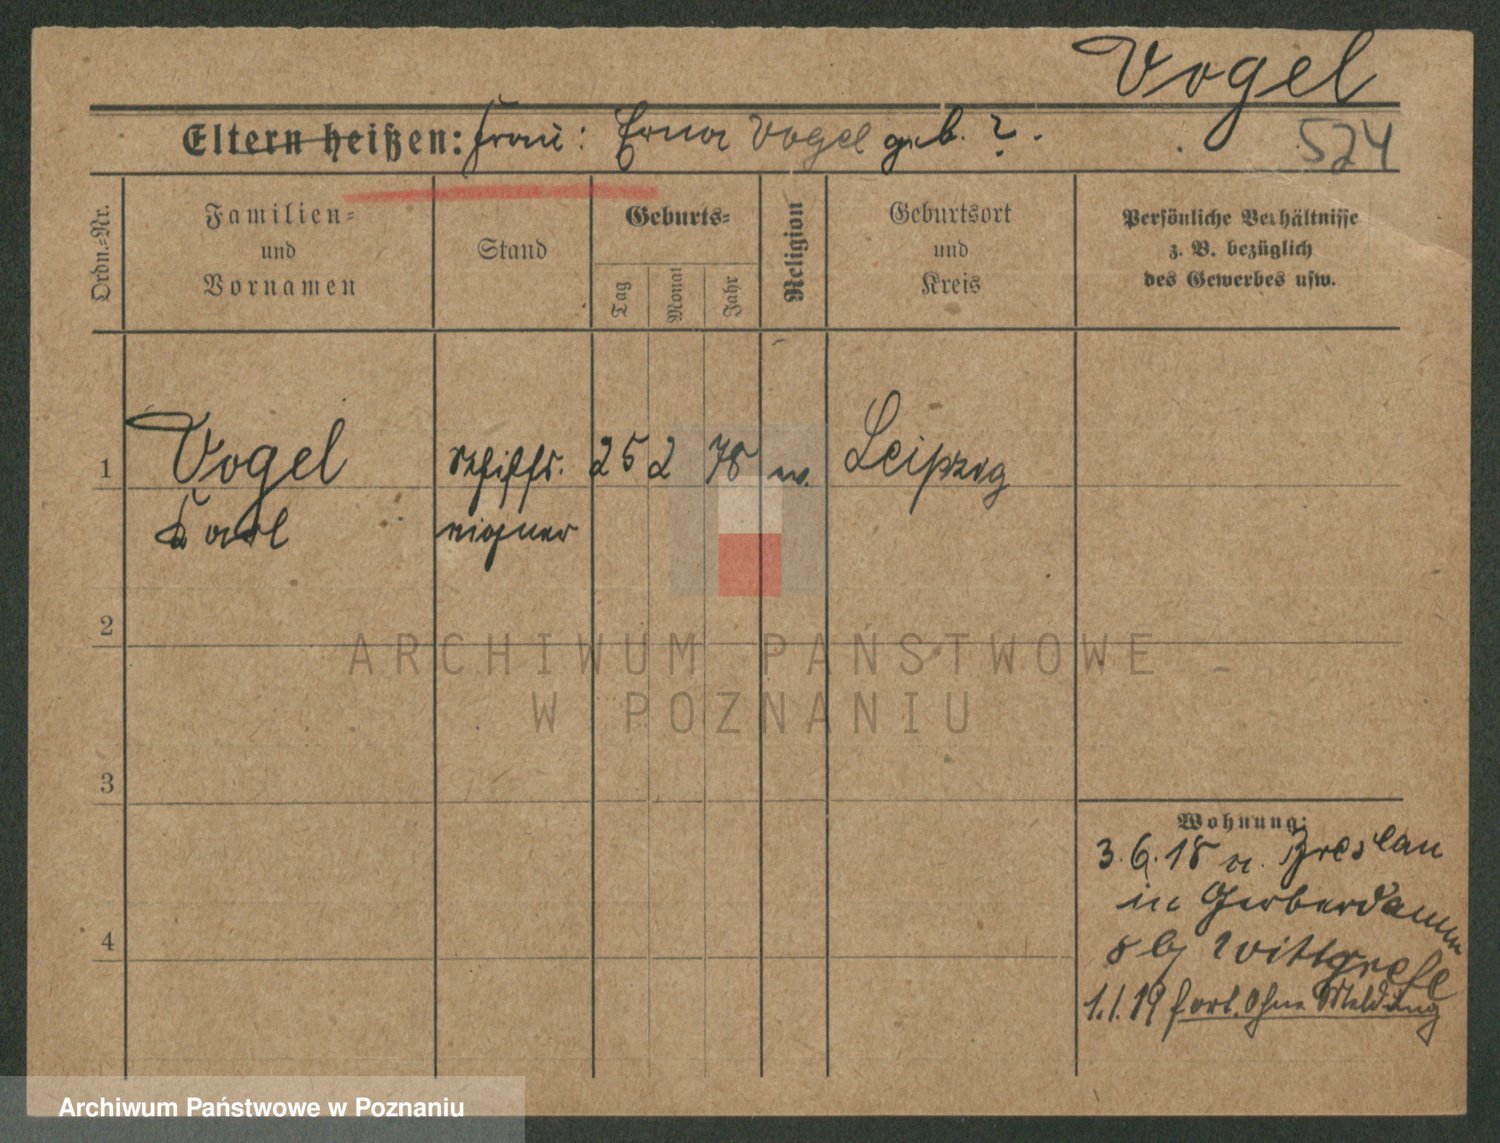 Vogel
Eltern heißen: Frau: Erna Vogel geb. ?.
524
Ordn.=Nr.
Familien=
und
Vornamen
Stand
Geburts=
Tag
Monat
Jahr
Religion
Geburtsort
und
Kreis
Persönliche Verhältnisse
z. B. bezüglich
des Gewerbes usw.
1
Vogel
Karl
Schiffs.
eigner
25 2 78
Leipzig
2
3
4
ARCHIWUM PAŃSTWOWE
W POZNANIU
Wohnung:
3.6.18 v. Breslau
in Gerberdamm
8 bj
1.1.19 fort. Ohne Meldung
Archiwum Państwowe w Poznaniu